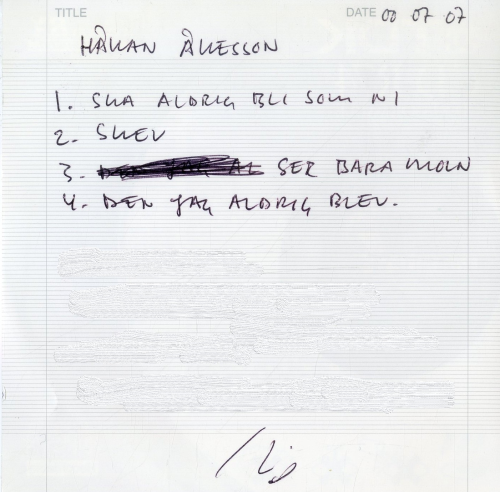 TITLE
DATE 00 07 07
HÅKAN ÅKESSON
1. SKA ALDRIG BLI SOM NI
2. SKEV
3. SER BARA MOLN
4. DEN JAG ALDRIG BLEV.